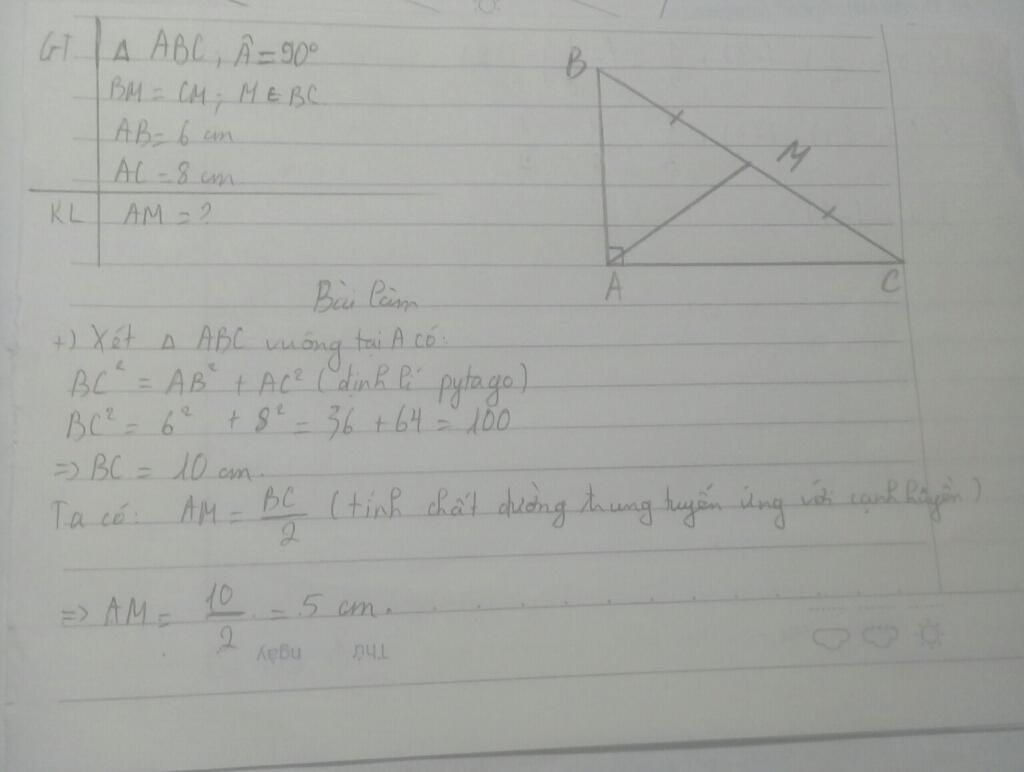 GT Δ ABC, Â = 90°
BM = CM; M ∈ BC
AB = 6 cm
AC = 8 cm
KL AM = ?
B
M
A
C
Bài làm
+) Xét Δ ABC vuông tại A có:
BC² = AB² + AC² (định lí pytago)
BC² = 6² + 8² = 36 + 64 = 100
=> BC = 10 cm.
Ta có: AM = BC/2 (tính chất đường trung tuyến ứng với cạnh huyền)
=> AM = 10/2 = 5 cm.
Thứ ngày